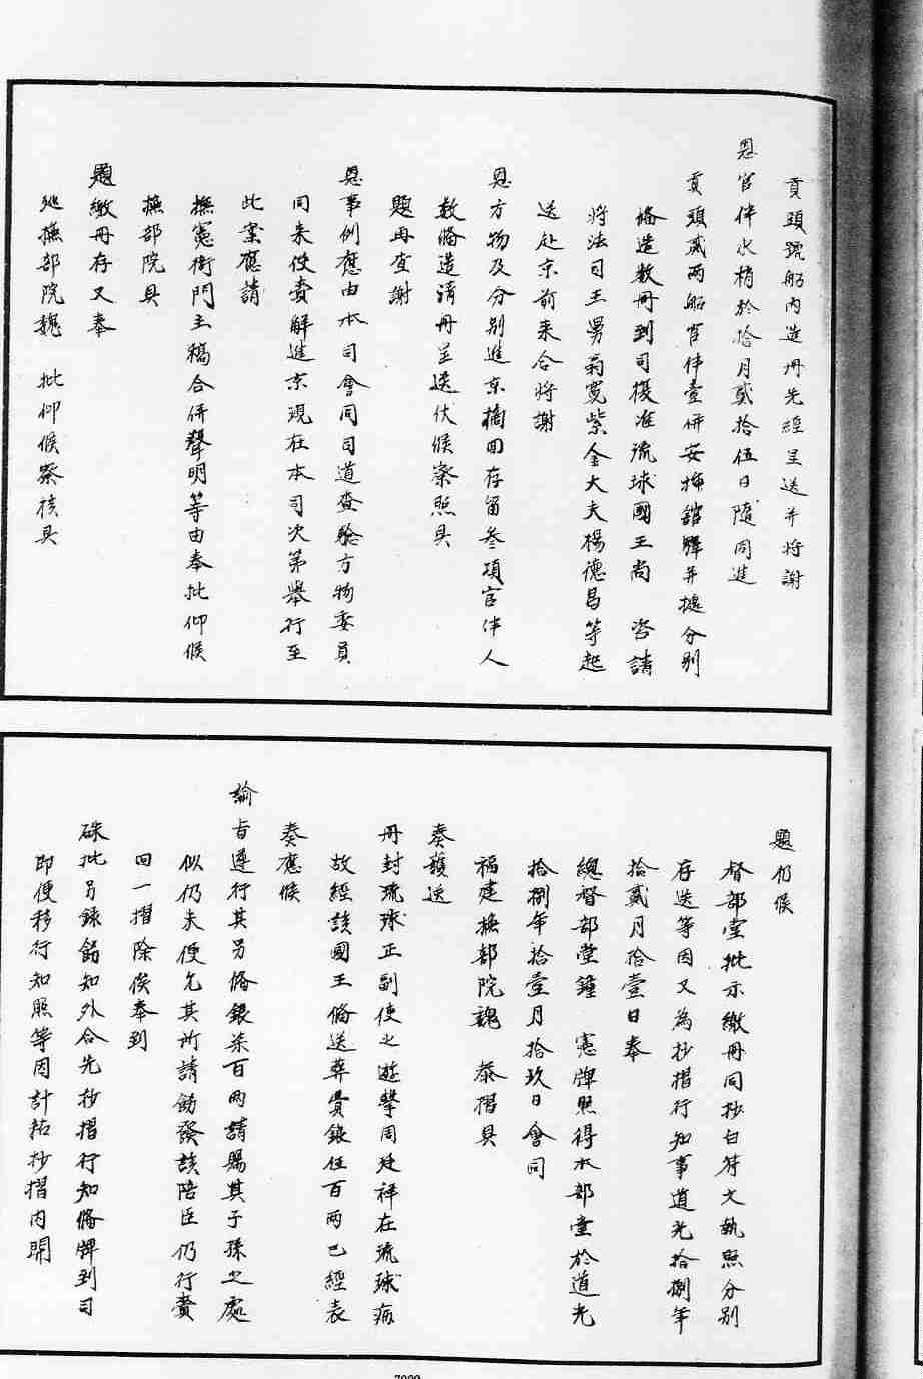 貢頭號船內造冊先經呈送并將謝
恩官伴水梢於拾月貳拾伍日隨同進
貢頭貳兩船官伴壹併安插館驛并摠分别
俻造数冊到司復准流球國王尚　咨請
將法司王舅　寛紫金大夫楊德昌等起
送赴京前来合將謝
恩方物及分别進京摘回存留叁項官伴人
数俻造清冊呈送伏候察照具
題再查謝
恩事例應由本司會同司道查驗方物委員
同来使賫解進京現在本司次第舉行至
此案應請
撫憲衙門主稿合併聲明等由奉批仰候
撫部院具
題繳冊存又奉
廵撫部院魏　批仰候察核具
題仍候
督部堂批示繳冊同抄白符文執照分别
存送等因又為抄摺行知事道光拾捌年
拾貳月拾壹日奉
總督部堂鍾　憲牌照得本部堂於道光
拾捌年拾壹月拾玖日會同
福建撫部院魏　恭摺具
奏護送
冊封琉球正副使之遊擊周廷祥在琉球病
故經該國王俻送葬費銀伍百兩已經表
奏應候
諭旨遵行其另俻銀柒百两請賜其子孫之處
似仍未便允其所請飭發該陪臣仍行賫
回一摺除俟奉到
硃批另錄飭知外合先抄摺行知俻牌到司
即便移行知照等因計粘抄摺内開